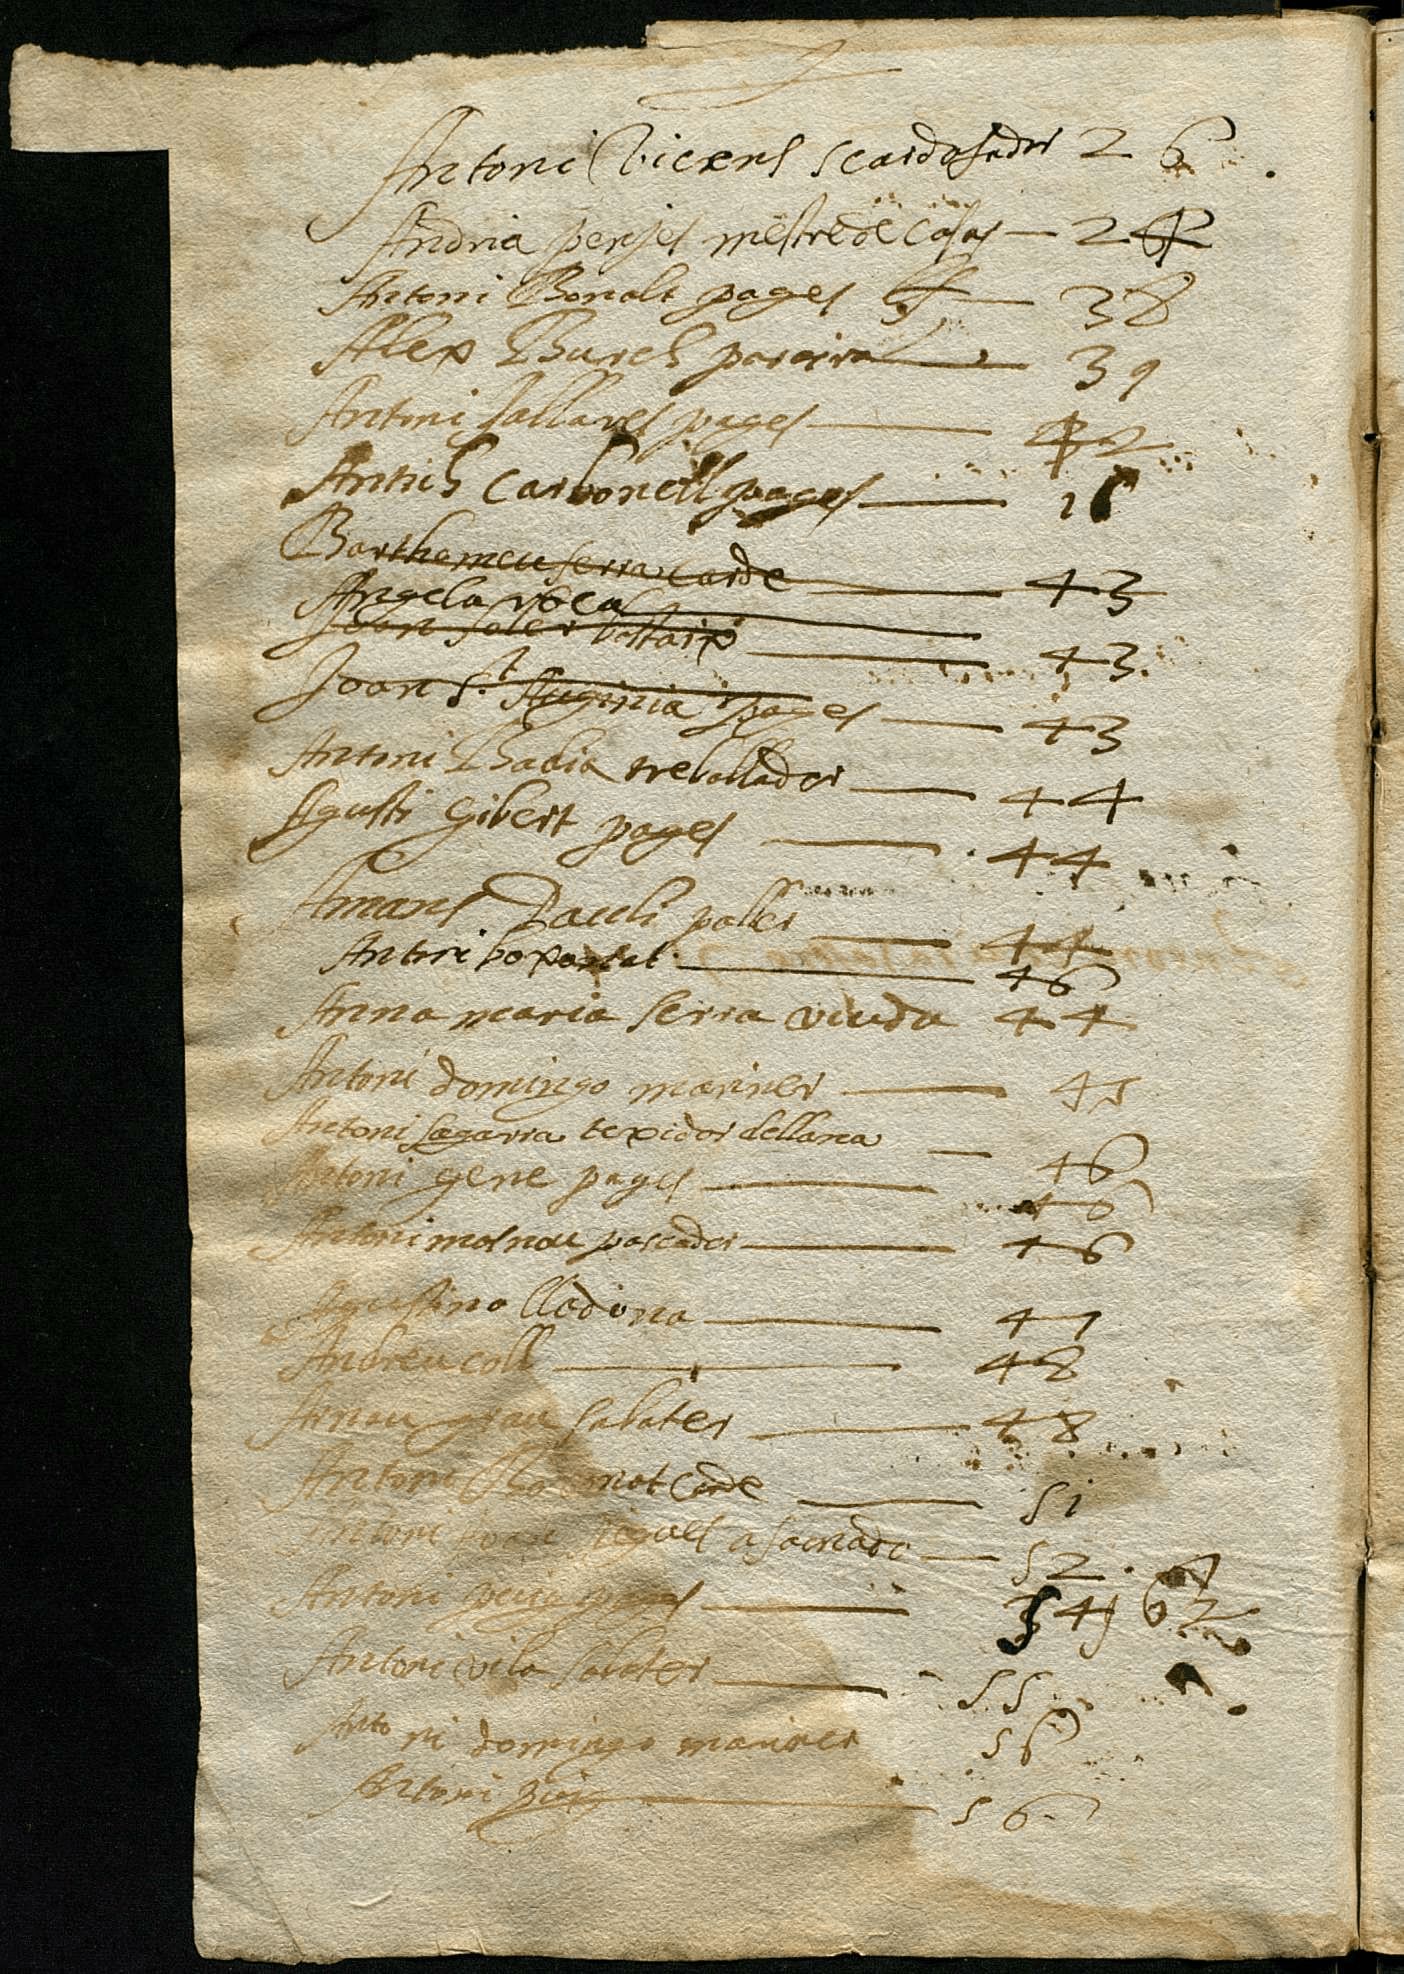 Antoni Vicens scardasador 26
Andria perpes mestre de casas — 24
Antoni Bonalt pages — 38
Alex Burch — 39
Antoni sallares pages — 42
Antich Carbonell pages — 18
Barthomeu serra Corde — 43
Angela roca
Joan soler bastaix — 43
Joan St. Auginia pages — 43
Antoni Badia treballador — 44
Agusti Gibert pages — 44
Amans Dauli — 44
Antoni — 46
Anna maria serra viuda 44
Antoni domingo mariner — 45
Antoni sagarra texidor de llana — 46
Antoni gene pages — 46
Antoni masnou pascador — 46
Agustina lladona — 47
Andreu coll — 48
Arnau grau sabater — 48
Antoni Corde — 51
Antoni Joan — 52
Antoni pages — 54 62
Antoni vila sabater — 55
Antoni domingo mariner 56
Antoni puig — 56